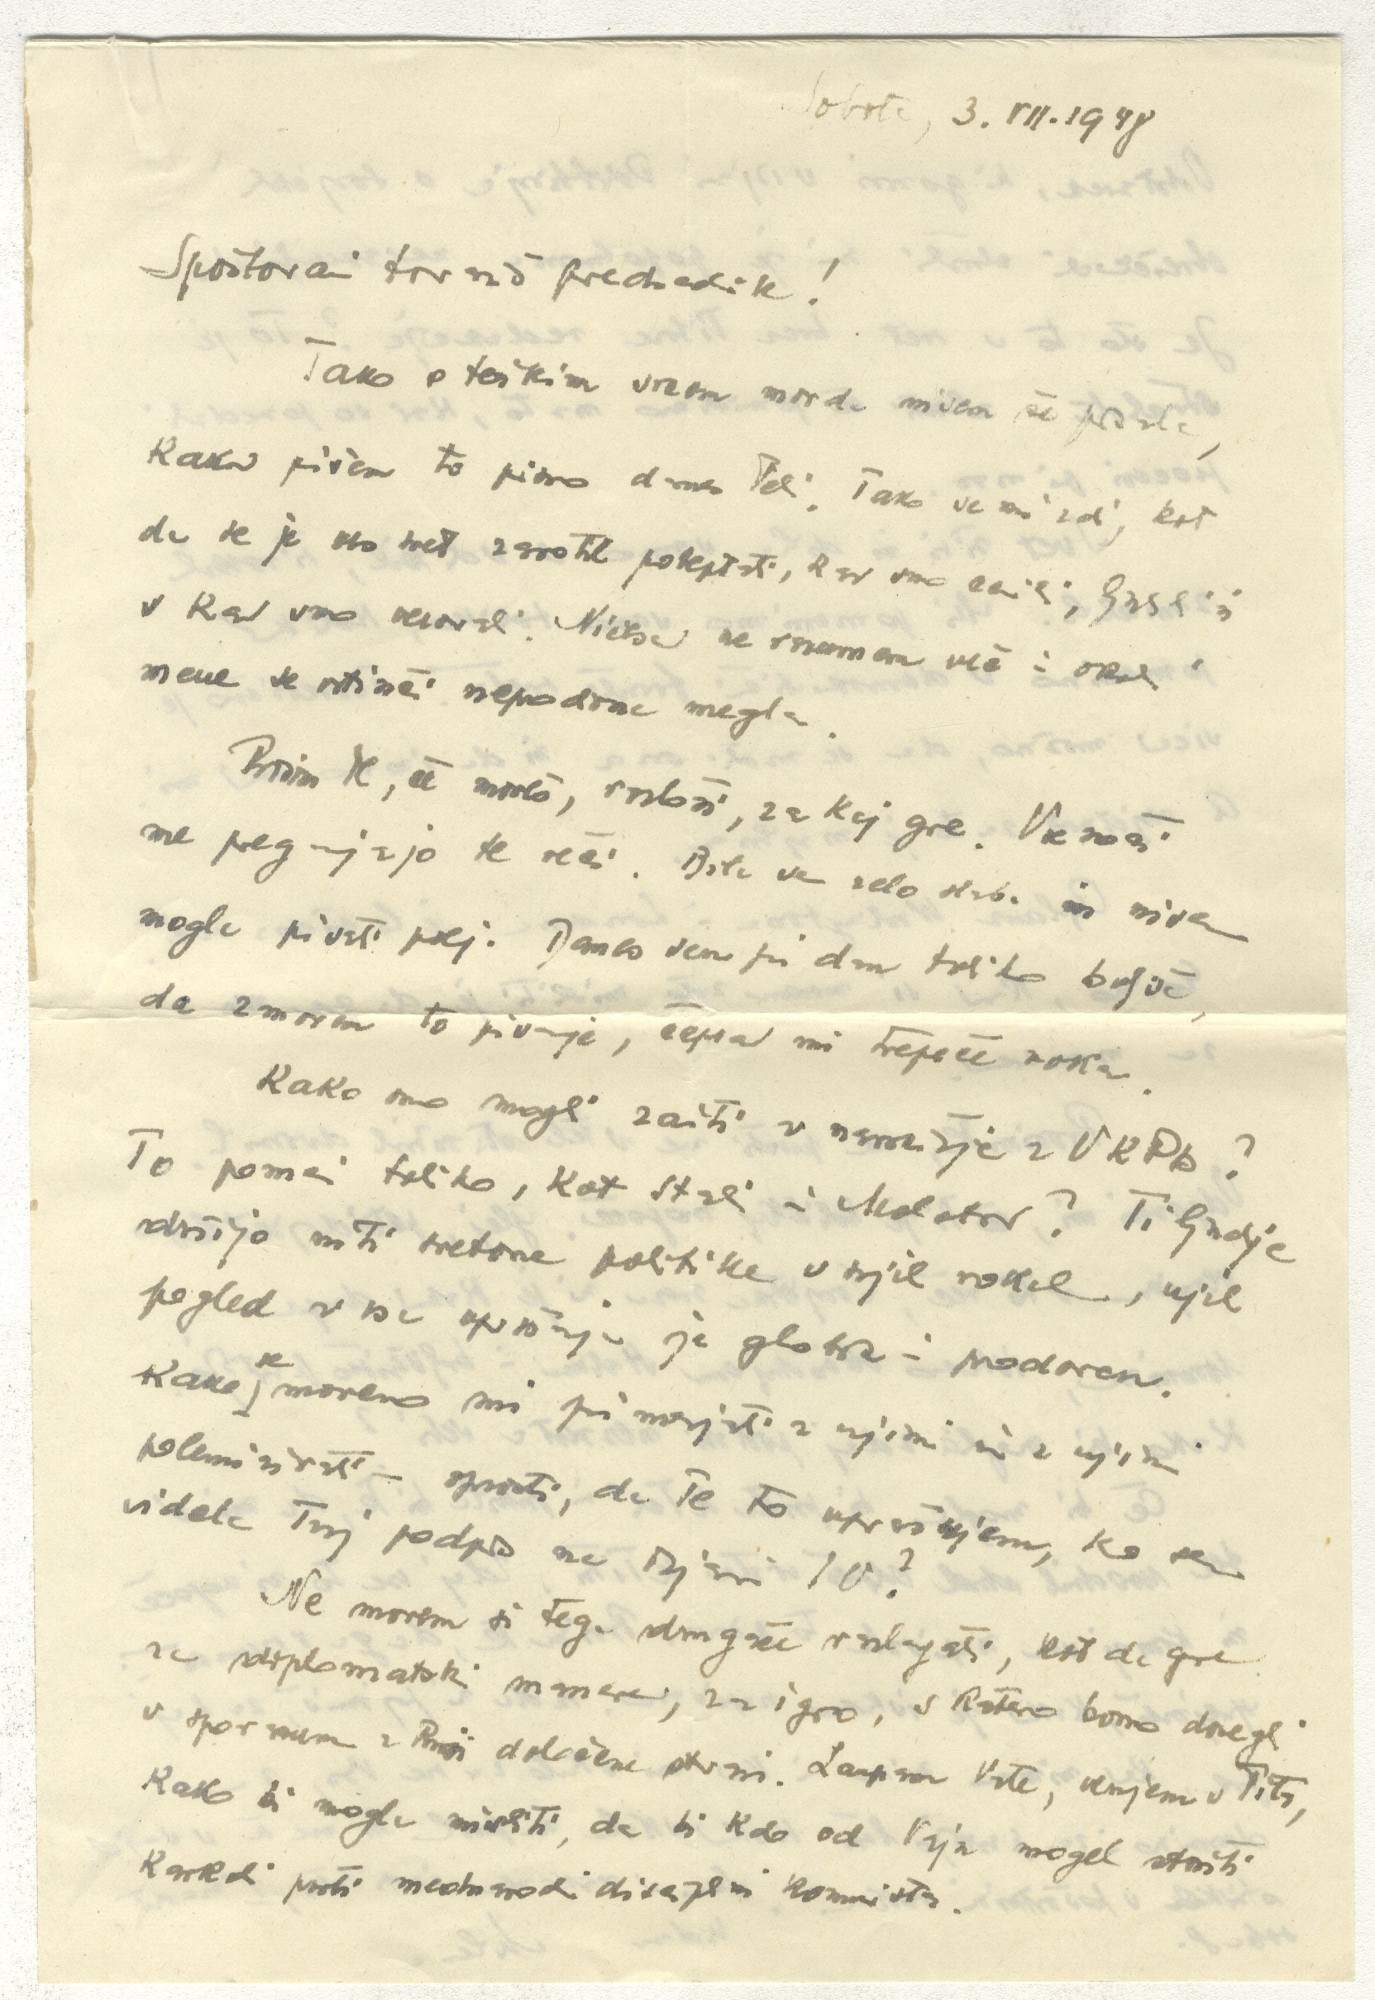 Sobota, 3. VII. 1948
Spoštovani tovariš predsednik!
Tako s težkim srcem morda nisem še pisala,
kakor pišem to pismo danes Tebi. Tako se mi zdi, kot
da se je ves svet zarotil poteptati, kar smo cenili, ljubili in
v kar smo verovali. Ničesar ne razumem več in okoli
mene se stiska neprodirna megla.
Prosim te, če moreš, razloži, za kaj gre. Vse noči
me preganjajo te reči. Bila sem zelo slaba in nisem
mogla pisati prej. Danes sem pa dan toliko boljša,
da zmorem to pisanje, čeprav mi trepeče roka.
Kako smo mogli zaiti v navzkrižje z VKPb?
To pomeni toliko, kot Stalin in Molotov? Ti ljudje
držijo niti svetovne politike v svojih rokah, njih
pogled v vsa vprašanja je globok in prodoren.
Kako se moremo mi primerjati z njimi in z njimi
polemizirati – oprosti, da Te to vprašujem, ko sem
videla Tvoj podpis na izjavi IO?
Ne morem si tega drugače razlagati, kot da gre
za diplomatski manever, za igro, s katero bomo dosegli
v sporazumu z Rusi določene stvari. Zaupam Vate, verujem v Tita,
kako bi mogla misliti, da bi kdo od Vaju mogel storiti
karkoli proti mednarodni disciplini komunista.